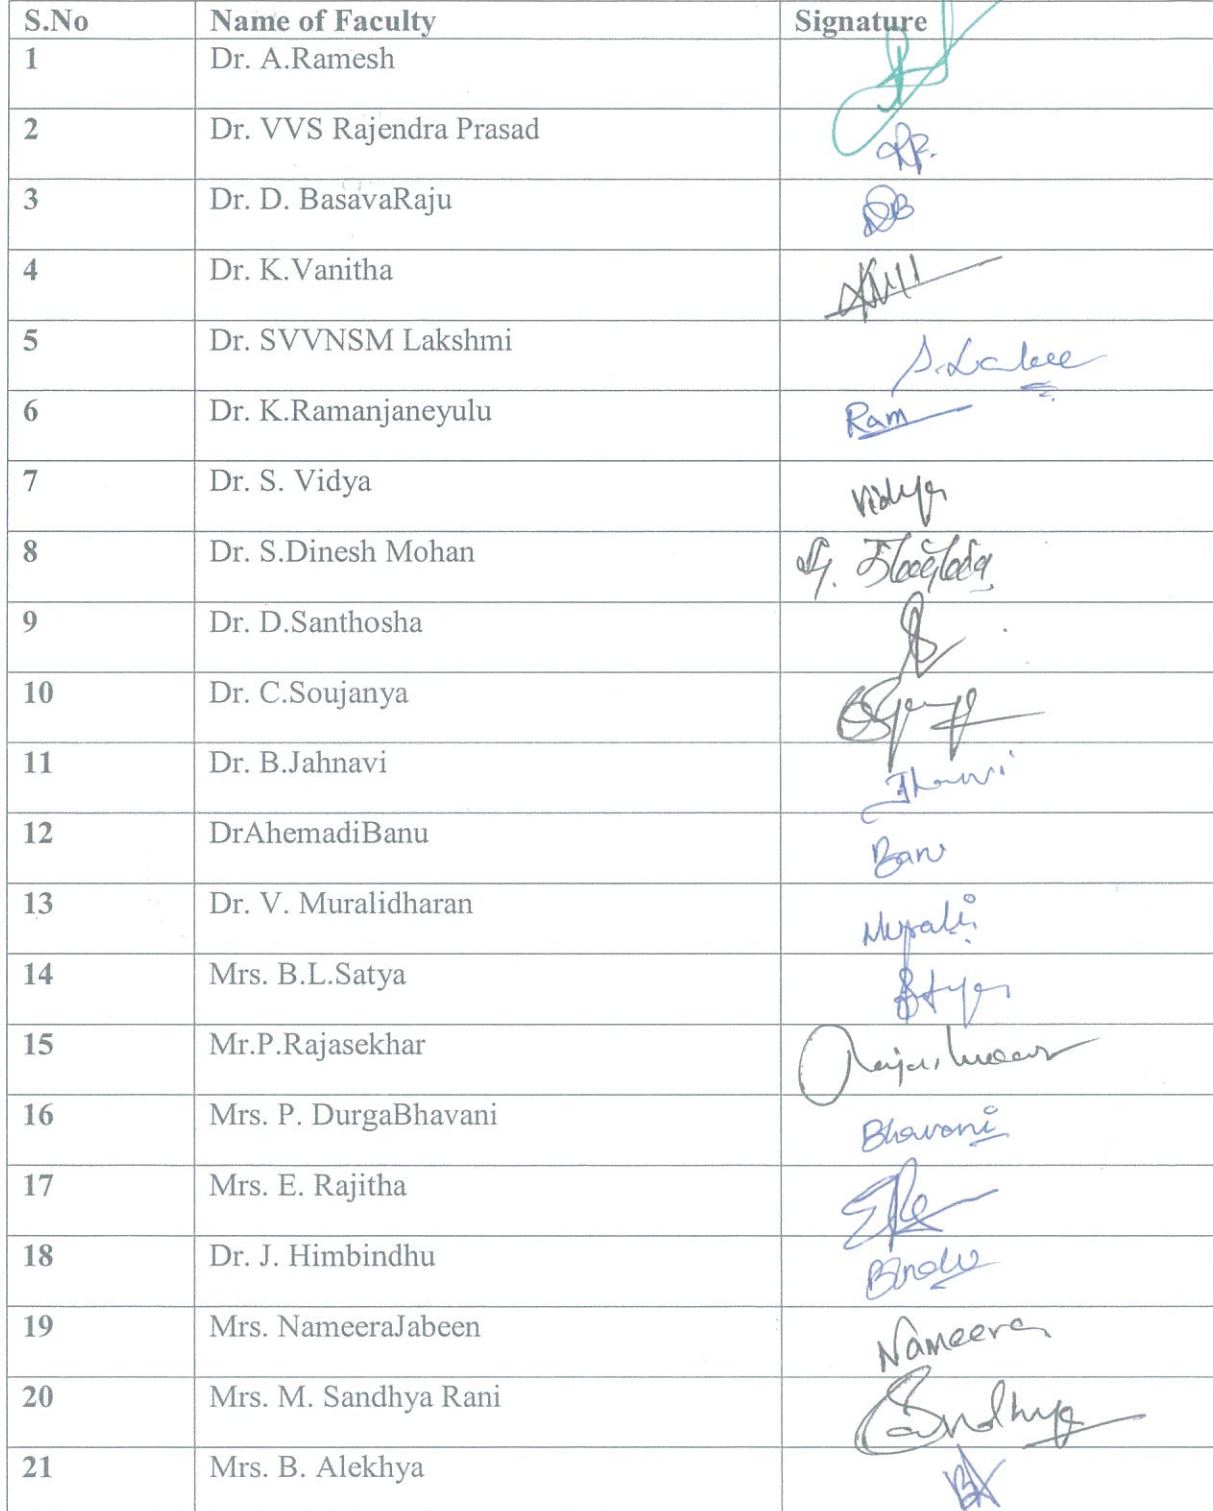 S.No Name of Faculty Signature
1 Dr. A.Ramesh
2 Dr. VVS Rajendra Prasad
3 Dr. D. BasavaRaju DB
4 Dr. K.Vanitha
5 Dr. SVVNSM Lakshmi
6 Dr. K.Ramanjaneyulu Ram
7 Dr. S. Vidya Vidya
8 Dr. S.Dinesh Mohan
9 Dr. D.Santhosha
10 Dr. C.Soujanya
11 Dr. B.Jahnavi
12 DrAhemadiBanu Banu
13 Dr. V. Muralidharan Murali
14 Mrs. B.L.Satya
15 Mr.P.Rajasekhar
16 Mrs. P. DurgaBhavani Bhavani
17 Mrs. E. Rajitha
18 Dr. J. Himbindhu Bindu
19 Mrs. NameeraJabeen Nameera
20 Mrs. M. Sandhya Rani Sandhya
21 Mrs. B. Alekhya